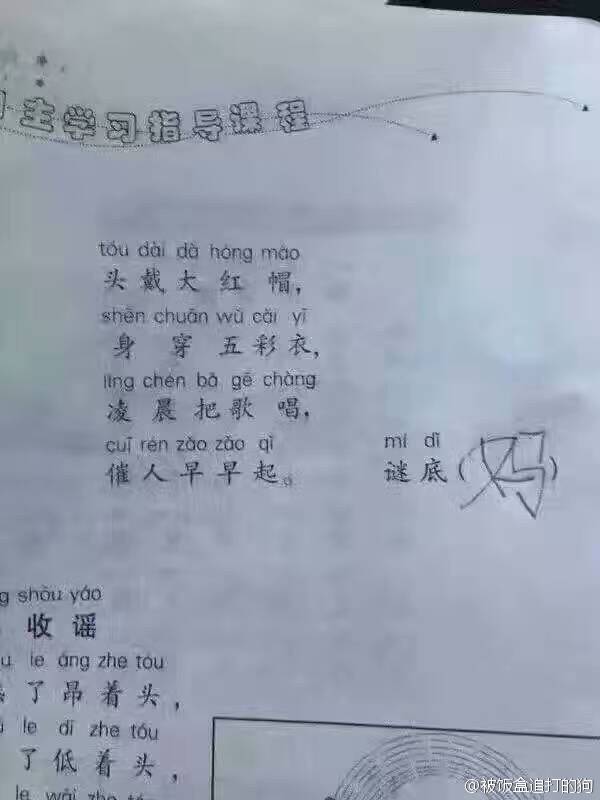 主学习指导课程
tóu dài dà hóng mào
头戴大红帽，
shēn chuān wǔ cǎi yī
身穿五彩衣，
líng chén bǎ gē chàng
凌晨把歌唱，
cuī rén zǎo zǎo qǐ
催人早早起。
mí dǐ
谜底（妈）
shōu yáo
收谣
le áng zhe tóu
了昂着头，
le dī zhe tóu
了低着头，
le wāi zhe
@被饭盒追打的狗